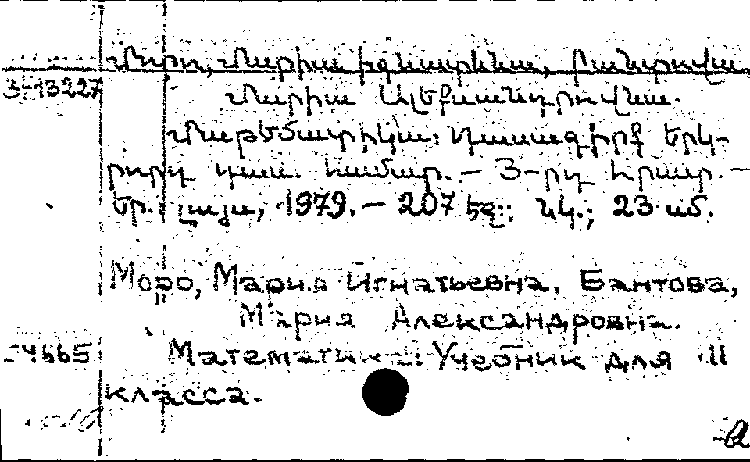 Մորո, Մարիա Իգնատևնա, Բանտովա,
3-13227
Մարիա Ալեքսանդրովնա.
Մաթեմատիկա: Դասագիրք երկ-
րորդ դաս. համար. – 3-րդ հրատ. –
Եր.: Լույս, 1979. – 207 էջ:, նկ.; 23 սմ.
Моро, Мария Игнатьевна, Бантова,
Мария Александровна.
-4665
Математика: Учебник для II
класса.